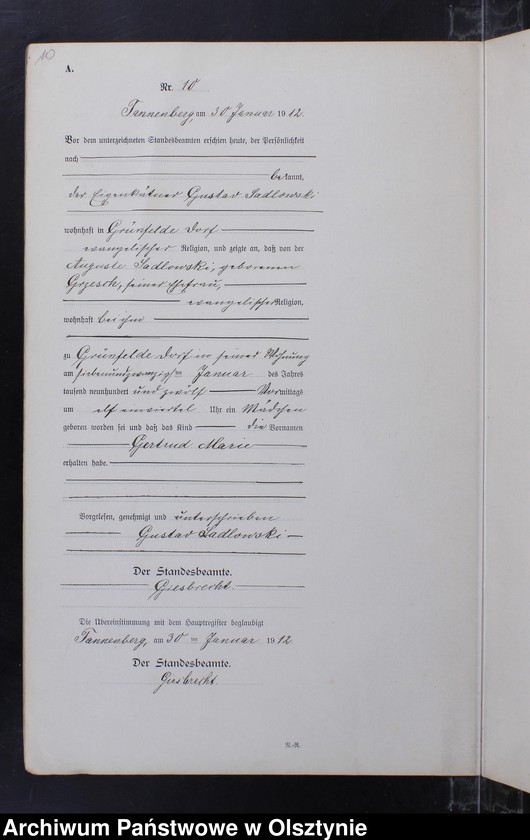 10
A.
Nr. 10
Tannenberg, am 30 Januar 1912.
Vor dem unterzeichneten Standesbeamten erschien heute, der Persönlichkeit
nach
bekannt,
der Eigenkätner Gustav Sadlowski
wohnhaft in Grünfelde Dorf
evangelischer Religion, und zeigte an, daß von der
Auguste Sadlowski, geborenen
Grzesch, seiner Ehefrau,
evangelischer Religion,
wohnhaft bei ihm
zu Grünfelde Dorf in seiner Wohnung
am siebenundzwanzigsten Januar des Jahres
tausend neunhundert und zwölf Vormittags
um elf einviertel Uhr ein Mädchen
geboren worden sei und daß das Kind die Vornamen
Gertrud Marie
erhalten habe.
Vorgelesen, genehmigt und unterschrieben
Gustav Sadlowski
Der Standesbeamte.
Giesbrecht.
Die Übereinstimmung mit dem Hauptregister beglaubigt
Tannenberg, am 30 ten Januar 1912.
Der Standesbeamte.
Giesbrecht.
R.-R.
Archiwum Państwowe w Olsztynie